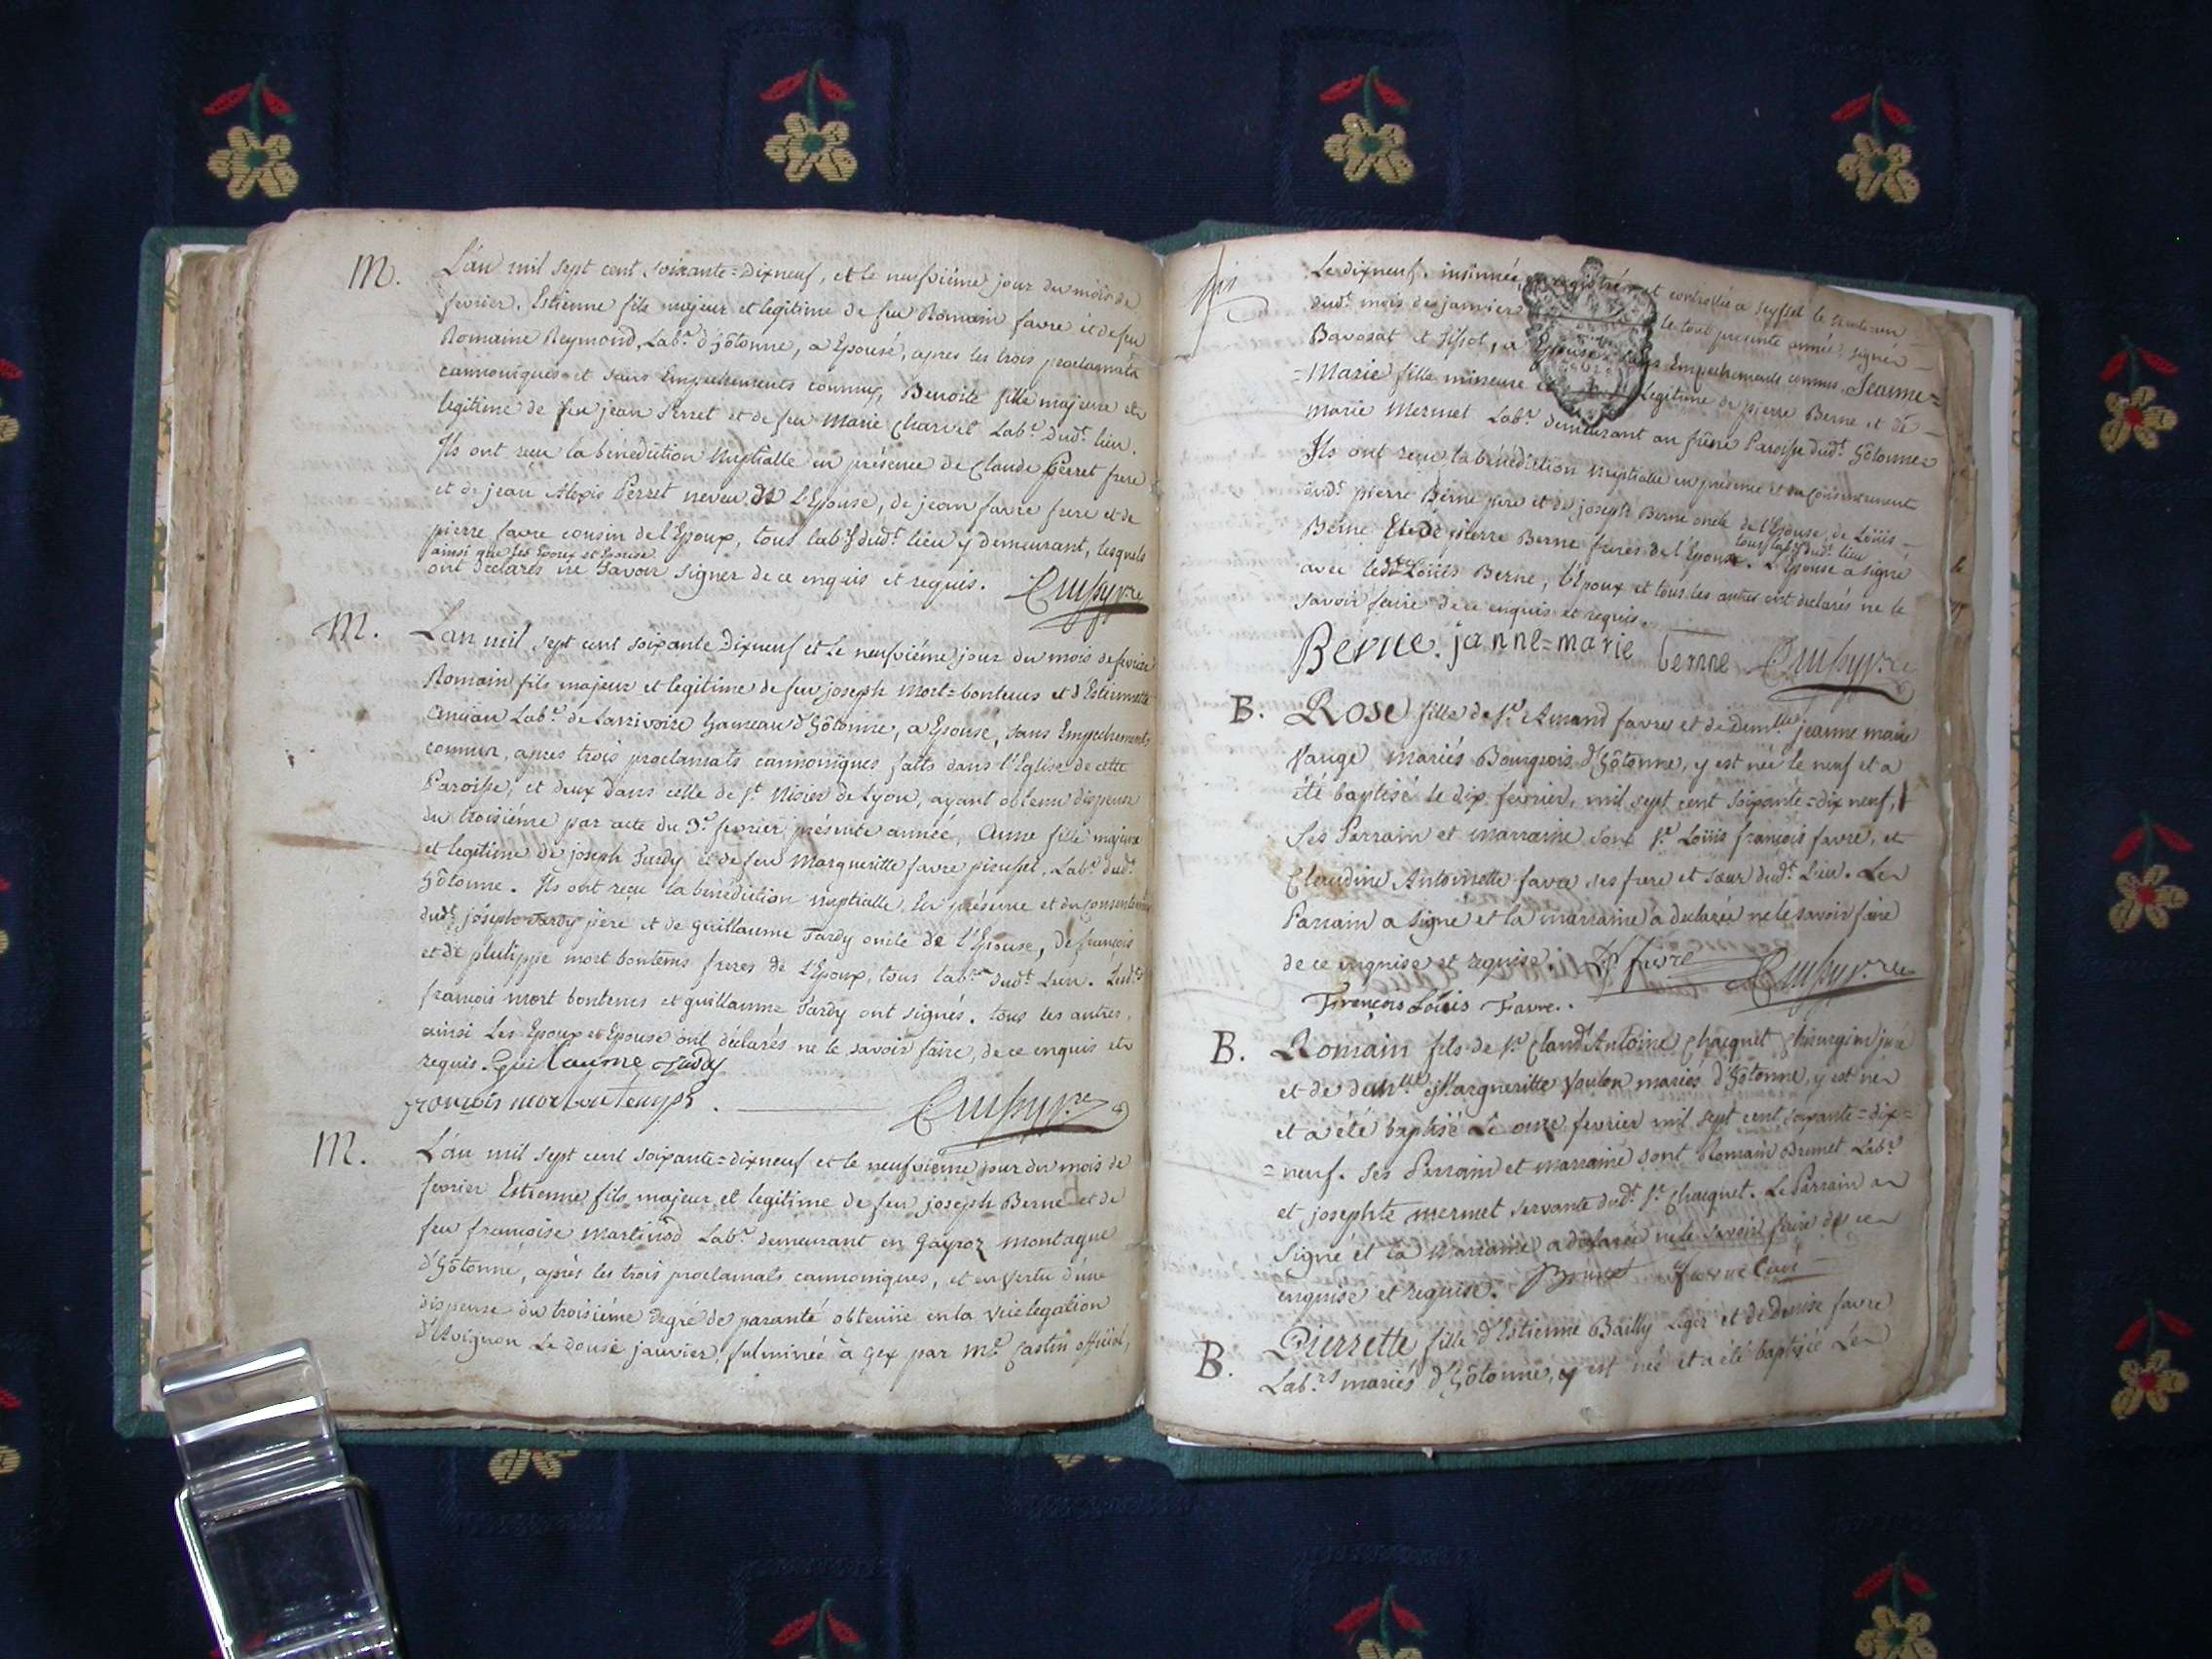 M. L'an mil sept cent soixante=dixneuf, et le neufviéme jour du mois de
fevrier, Estienne fils majeur et legitime de feu Romain favre et de feu
Romaine Reymond, Lab.r d'hôtonne, a Epousé, apres les trois proclamats
cannoniques et sans Empechements connus, Benoite fille majeure et
legitime de feu jean Perret et de feu Marie Charvet Lab.r dud.t lieu.
Ils ont reçu la bénédiction Nuptialle en présence de Claude Perret frere
et de jean Alexis Perret neveu de L'Epouse, de jean favre frere et de
pierre favre cousin de l'Epoux, tous lab.rs dud.t lieu y demeurant, lesquels
ainsi que les Epoux et Epouse
ont déclarés ne Savoir signer de ce enquis et requis.
M. L'an mil sept cent soixante Dixneuf et Le neufviéme jour du mois de fevrier
Romain fils majeur et legitime de feu joseph Mort=bontems et d'Estiennette
Lab.r de Larrivoire hameau d'hôtonne, a Epousé, sans Empechements
connus, apres trois proclamats cannoniques faits dans l'Eglise de cette
Paroisse, et deux dans celle de S.t Nisier de Lyon, ayant obtenu dispense
du troisiéme par acte du 3.e fevrier présente année, Anne fille majeure
et legitime de joseph Tardy et de feu Margueritte favre Lab.r dud.t
hôtonne. Ils ont reçu la bénédiction nuptialle, En présence et du consentement
dud.t joseph Tardy pere et de guillaume Tardy oncle de L'Epouse, de françois
et de philippe mort bontems freres de L'Epoux, tous lab.rs dud.t Lieu. Led.t
françois mort bontems et guillaume Tardy ont signés. tous les autres,
ainsi Les Epoux et Epouse ont déclarés ne le savoir faire, de ce enquis et
requis. Guilaume Tardy
françois mortbontemps.
M. L'an mil sept cent soixante=dixneuf et le neufvieme jour du mois de
fevrier Estienne fils majeur et legitime de feu joseph Berne et de
feu françoise Martinod Lab.r demeurant en montagne
d'hôtonne, après les trois proclamats cannoniques, et en vertu d'une
dispense du troisiéme degré de paranté obtenüe en la Vice legation
d'Avignon Le douse janvier, fulminée à gex par M.r Castin official,
Le dixneuf, insinuée, et controllée a Seyssel le
dud.t mois de janvier le tout presente année, signé
Bavosat et a Epousé sans Empechements connus Jeanne=
=Marie fille mineure et Legitime de pierre Berne et de
marie Mermet Lab.r demeurant au Paroisse dud.t hôtonne
Ils ont reçu la bénédiction nuptialle en présence et du consentement
dud.t pierre Berne pere et de joseph Berne oncle de l'Epouse, de Loüis
tous lab.rs dud.t lieu
Berne Et de pierre Berne freres de l'Epouse. L'Epouse a signé
avec led.t Loüis Berne, l'Epoux et tous les autres ont declarés ne le
savoir faire de ce enquis et requis.
Berne. janne=marie berne
B. Rose fille de S.r Amand favre et de Dem.lle jeanne marie
mariés Bourgeois d'hôtonne, y est née le neuf et a
été baptisé le dix fevrier, mil sept cent soixante=dix neuf,
Ses Parrain et marraine sont S.r Loüis françois favre, et
Claudine Antoinette favre ses frere et sœur dud.t Lieu. Le
Parrain a signé et la marraine a declarée ne le savoir faire
de ce enquise et requise. favre
François Loüis Favre.
B. Romain fils de S.r Claud'Antoine Chacquet Chirurgien juré
et de dem.lle Margueritte mariés d'hôtonne, y est né
et a été baptisé Le onze fevrier mil sept cent soixante=dix=
=neuf. Ses Parrain et marraine sont Romain Brunet Lab.r
et josephte mermet servante dud.t S.r Chacquet. Le Parrain a
signé et la Marraine a déclarée ne le savoir faire de ce
enquise et requise. Brunet favre Curé
B. Pierrette fille d'Estienne Bailly Leger et de Denise favre
Lab.rs mariés d'hôtonne, y est née et a été baptisée Le